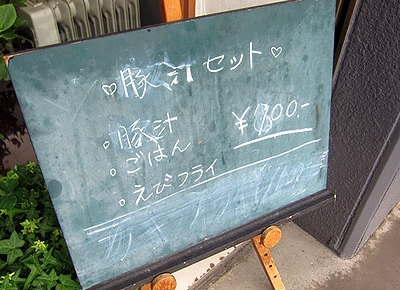 ♡豚汁セット♡
。豚汁
。ごはん
。えびフライ
¥800.-